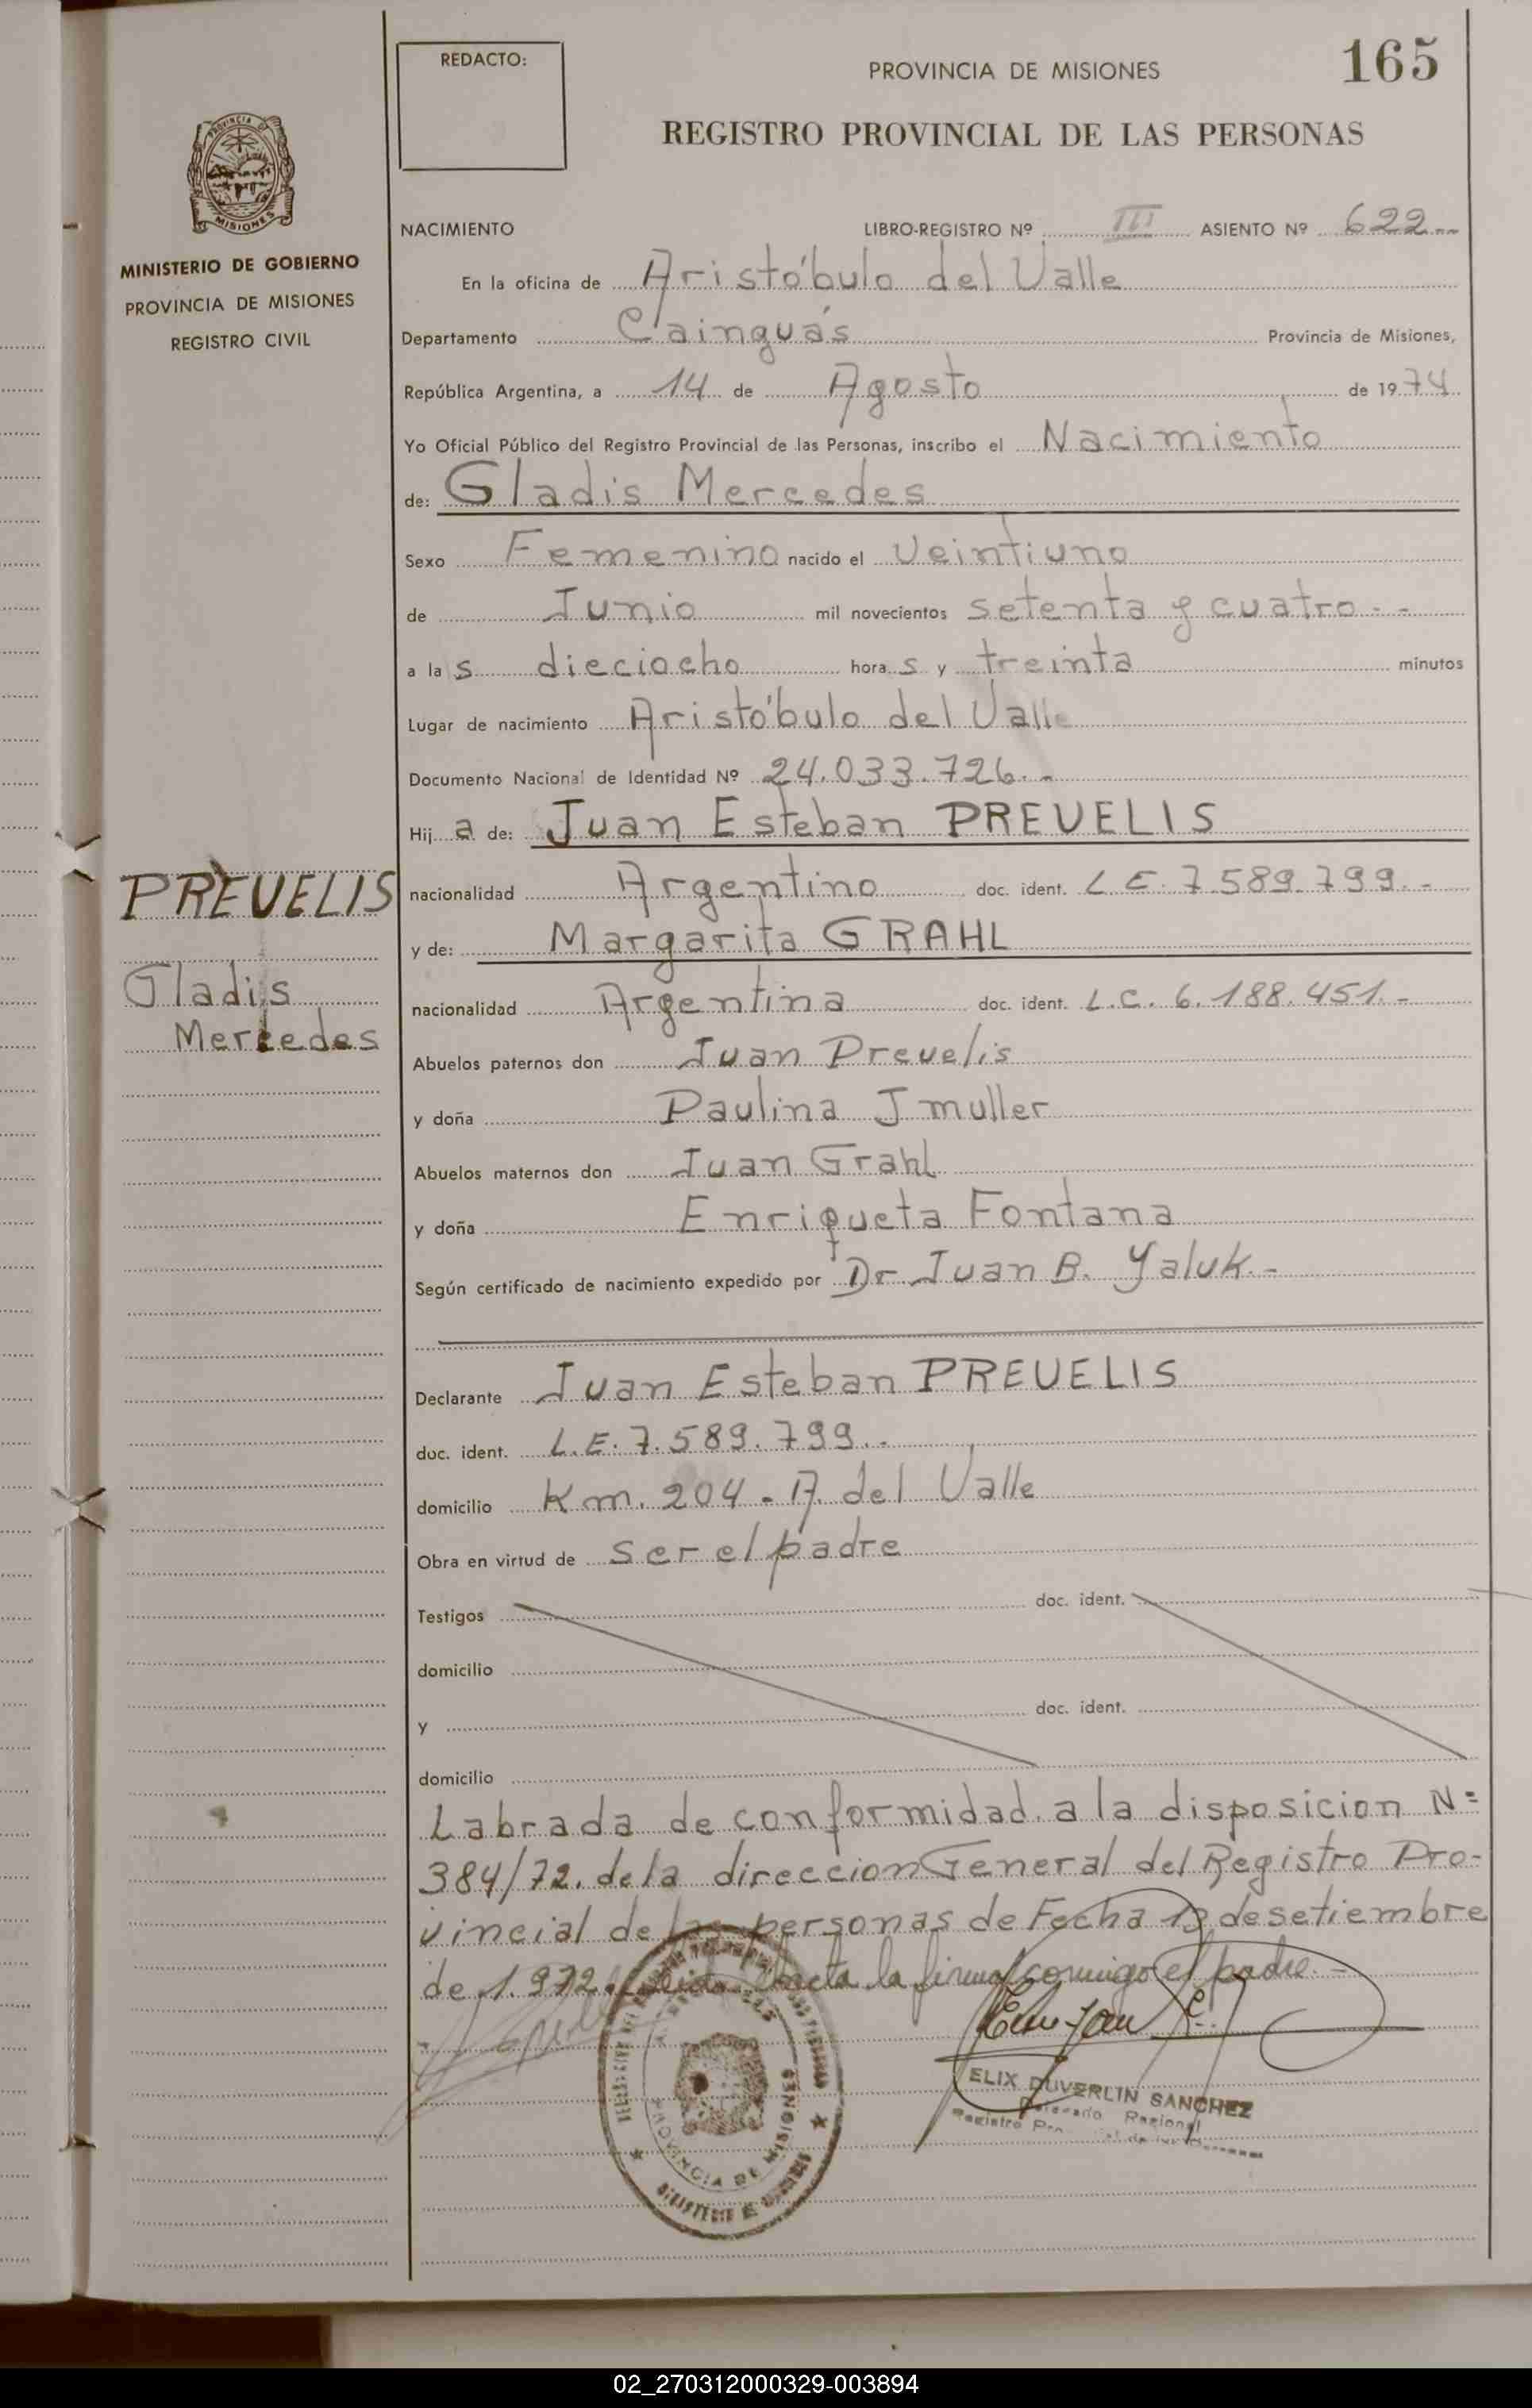 REDACTO:
PROVINCIA DE MISIONES
165
REGISTRO PROVINCIAL DE LAS PERSONAS
PROVINCIA D
MISIONES
MINISTERIO DE GOBIERNO
PROVINCIA DE MISIONES
REGISTRO CIVIL
NACIMIENTO LIBRO-REGISTRO Nº III ASIENTO Nº 622--
En la oficina de Aristóbulo del Valle
Departamento Cainguás Provincia de Misiones,
República Argentina, a 14 de Agosto de 1974
Yo Oficial Público del Registro Provincial de las Personas, inscribo el Nacimiento
de: Gladis Mercedes
Sexo Femenino nacido el Veintiuno
de Junio mil novecientos setenta y cuatro--
a las dieciocho horas y treinta minutos
Lugar de nacimiento Aristóbulo del Valle
Documento Nacional de Identidad Nº 24.033.726.-
Hija de: Juan Esteban PREVELIS
PREVELIS
Gladis
Mercedes
nacionalidad Argentino doc. ident. L.E. 7.589.799.-
y de: Margarita GRAHL
nacionalidad Argentina doc. ident. L.C. 6.188.451.-
Abuelos paternos don Juan Prevelis
y doña Paulina Jmuller
Abuelos maternos don Juan Grahl
y doña Enriqueta Fontana
Según certificado de nacimiento expedido por Dr Juan B. Yaluk.-
Declarante Juan Esteban PREVELIS
doc. ident. L.E. 7.589.799.-
domicilio Km. 204 - A. del Valle
Obra en virtud de ser el padre
Testigos doc. ident.
domicilio
y doc. ident.
domicilio
Labrada de conformidad a la disposicion N=
384/72. de la direccion General del Registro Pro-
vincial de las personas de Fecha 13 de setiembre
de 1.972. Leida el acta la firma conmigo el padre.-
ELIX DUVERLIN SANCHEZ
Delegado Regional
Registro
PROVINCIA DE MISIONES
02_270312000329-003894